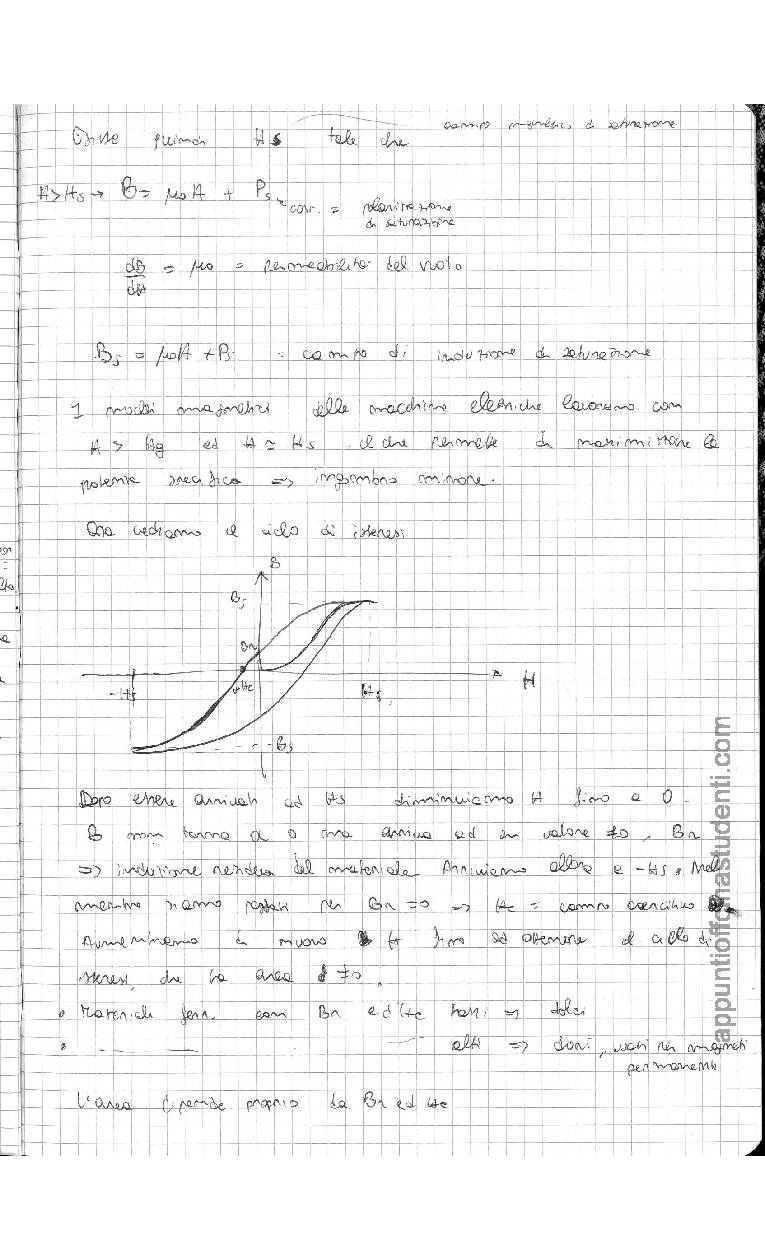 Esiste quindi Hs tale che campo magnetico di saturazione
H>Hs → B = μ0H + Ps cost. = polarizzazione
di saturazione
dB/dH = μ0 = permeabilità del vuoto
Bs = μ0H + Ps = campo di induzione di saturazione
I nuclei magnetici delle macchine elettriche lavorano con
H > Hg ed H ≃ Hs, il che permette di massimizzare la
potenza specifica => ingombro minore.
Ora vediamo il ciclo di isteresi
B
Bs
Br
-Hs
-Hc
Hs
H
-Bs
Dopo essere arrivati ad Hs diminuiamo H fino a 0.
B non torna a 0 ma arriva ad un valore ≠0, Br
=> induzione residua del materiale Arriviamo allora a -Hs. Nel
mentre siamo passati per Br =0 => Hc = campo coercitivo
Aumentiamo di nuovo H fino ad ottenere il ciclo di
isteresi, che ha area ≠0.
• Materiali ferr. con Br ed Hc bassi => dolci
• alti => duri, usati per magneti
permanenti
L'area dipende proprio da Br ed Hc
appuntioffcinastudenti.com